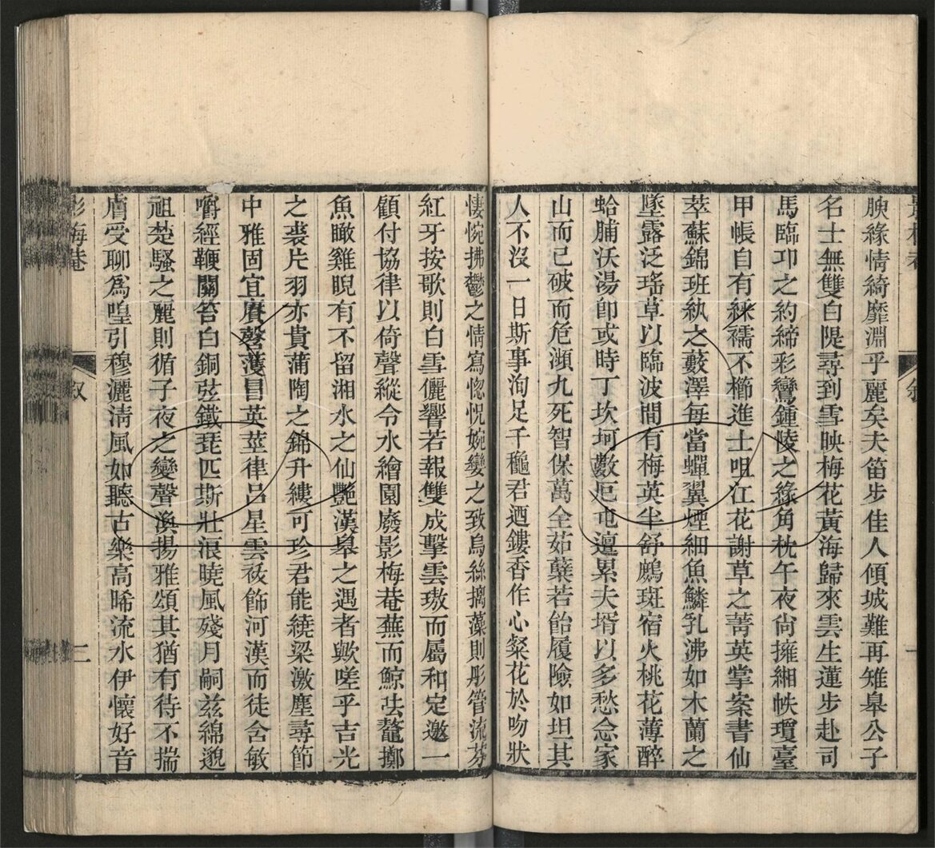 腴緣情綺靡淵乎麗矣夫笛步佳人傾城難再雉皋公子
名士無雙白隄尋到雪映梅花黃海歸來雲生蓮步赴司
馬臨卭之約締彩鸞鍾陵之緣角枕午夜尙擁緗帙瓊臺
甲帳自有綵襦不櫛進士咀江花謝草之菁英掌案書仙
萃蘇錦班紈之藪澤每當蟬翼煙細魚鱗乳沸如木蘭之
墜露泛瑤草以臨波間有梅英半舒鷓斑宿火桃花薄醉
蛤脯沃湯卽或時丁坎坷數厄屯邅累夫壻以多愁念家
山而已破而危瀕九死智保萬全茹蘗若飴履險如坦其
人不沒一日斯事洵足千龝君迺鏤香作心粲花於吻狀
悽惋拂鬱之情寫惚怳婉孌之致烏絲摛藻則彤管流芬
紅牙按歌則白雪儷響若報雙成擊雲璈而屬和定邀一
顧付協律以倚聲縱令水繪園廢影梅菴蕪而鯨呿鼇擲
魚瞰雞睨有不留湘水之仙艷漢皋之遇者歟嗟乎吉光
之裘片羽亦貴蒲陶之錦升縷可珍君能繞梁激塵尋節
中雅固宜賡聲濩冒英莖律呂星雲袨飾河漢而徒含敏
嚼經鞭關笞白銅弦鐵琵匹斯壯浪曉風殘月嗣茲綿邈
祖楚騷之麗則循子夜之變聲渙揚雅頌其猶有待不揣
膚受聊為喤引穆灑淸風如聽古樂高晞流水伊懷好音
影梅菴
敘
二